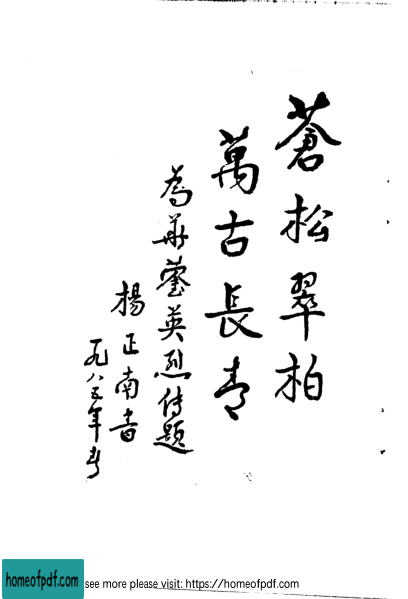 蒼松翠柏
萬古長青
為華蓥英烈传題
楊正南書
一九八五年春
homeofpdf.com
see more please visit: https://homeofpdf.com